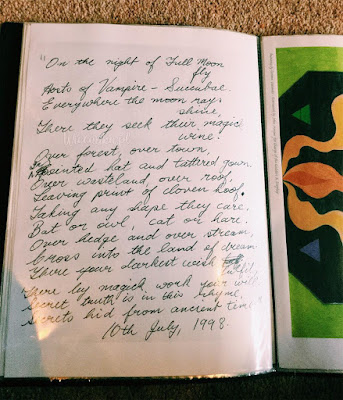 "On the night of Full Moon
fly
Hosts of Vampire - Succubae.
Everywhere the moon rays
shine,
There they seek their magic
wine.
Over forest, over town,
In pointed hat and tattered gown.
Over wasteland, over roof,
Leaving print of cloven hoof.
Taking any shape they care,
Bat or owl, cat or hare.
Over hedge and over stream,
Cross into the land of dream.
There your darkest wish fulfil,
There by magick work your will.
Secret truth is in this rhyme,
Secrets hid from ancient time."
10th July, 1998.